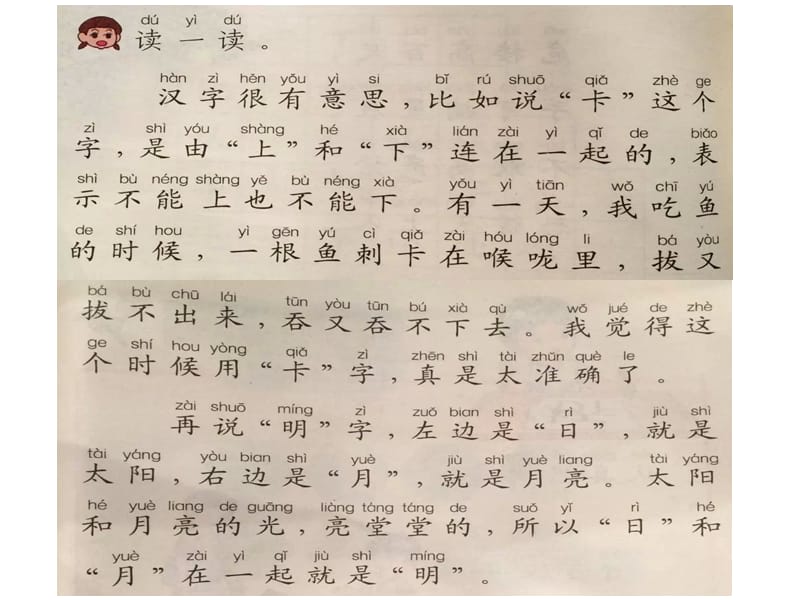 dú yì dú
读一读。
hàn zì hěn yǒu yì si bǐ rú shuō qiǎ zhè ge
汉字很有意思，比如说“卡”这个
zì shì yóu shàng hé xià lián zài yì qǐ de biǎo
字，是由“上”和“下”连在一起的，表
shì bù néng shàng yě bù néng xià yǒu yì tiān wǒ chī yú
示不能上也不能下。有一天，我吃鱼
de shí hou yì gēn yú cì qiǎ zài hóu lóng li bá yòu
的时候，一根鱼刺卡在喉咙里，拔又
bá bù chū lái tūn yòu tūn bú xià qù wǒ jué de zhè
拔不出来，吞又吞不下去。我觉得这
ge shí hou yòng qiǎ zì zhēn shì tài zhǔn què le
个时候用“卡”字，真是太准确了。
zài shuō míng zì zuǒ bian shì rì jiù shì
再说“明”字，左边是“日”，就是
tài yáng yòu bian shì yuè jiù shì yuè liang tài yáng
太阳，右边是“月”，就是月亮。太阳
hé yuè liang de guāng liàng táng táng de suǒ yǐ rì hé
和月亮的光，亮堂堂的，所以“日”和
yuè zài yì qǐ jiù shì míng
“月”在一起就是“明”。